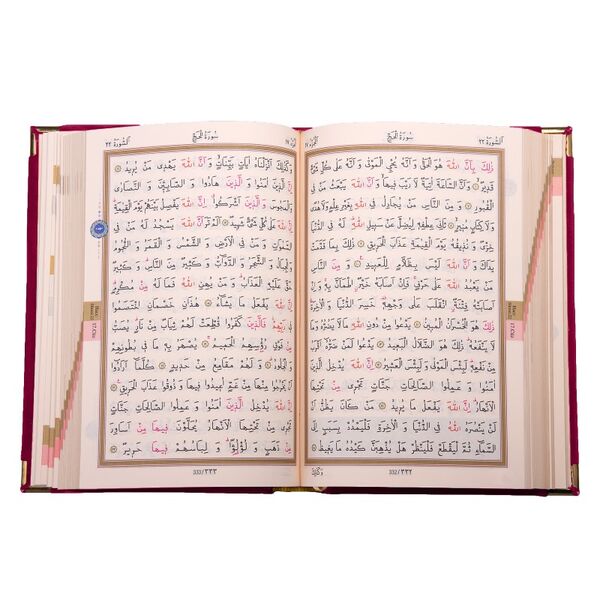 اَلسُّورَةُ ٢٢
سُورَةُ الْحَجِّ
اَلْجُزْءُ ١٧
ذٰلِكَ بِاَنَّ اللّٰهَ هُوَ الْحَقُّ وَاَنَّهُ يُحْيِ الْمَوْتٰى وَاَنَّهُ عَلٰى كُلِّ شَيْءٍ
قَدِيرٌ ۞ وَاَنَّ السَّاعَةَ اٰتِيَةٌ لَا رَيْبَ فِيهَا وَاَنَّ اللّٰهَ يَبْعَثُ مَنْ فِي
الْقُبُورِ ۞ وَمِنَ النَّاسِ مَنْ يُجَادِلُ فِي اللّٰهِ بِغَيْرِ عِلْمٍ وَلَا هُدًى
وَلَا كِتَابٍ مُنِيرٍ ۞ ثَانِيَ عِطْفِهِ لِيُضِلَّ عَنْ سَبِيلِ اللّٰهِ لَهُ فِي الدُّنْيَا
خِزْيٌ وَنُذِيقُهُ يَوْمَ الْقِيٰمَةِ عَذَابَ الْحَرِيقِ ۞ ذٰلِكَ بِمَا قَدَّمَتْ
يَدَاكَ وَاَنَّ اللّٰهَ لَيْسَ بِظَلَّامٍ لِلْعَبِيدِ ۞ وَمِنَ النَّاسِ
مَنْ يَعْبُدُ اللّٰهَ عَلٰى حَرْفٍ فَاِنْ اَصَابَهُ خَيْرٌ اطْمَاَنَّ بِهِ وَاِنْ
اَصَابَتْهُ فِتْنَةٌ انْقَلَبَ عَلٰى وَجْهِهِ خَسِرَ الدُّنْيَا وَالْاٰخِرَةَ
ذٰلِكَ هُوَ الْخُسْرَانُ الْمُبِينُ ۞ يَدْعُوا مِنْ دُونِ اللّٰهِ مَا لَا يَضُرُّهُ وَمَا
لَا يَنْفَعُهُ ذٰلِكَ هُوَ الضَّلَالُ الْبَعِيدُ ۞ يَدْعُوا لَمَنْ ضَرُّهُ اَقْرَبُ
مِنْ نَفْعِهِ لَبِئْسَ الْمَوْلٰى وَلَبِئْسَ الْعَشِيرُ ۞ اِنَّ اللّٰهَ يُدْخِلُ
الَّذِينَ اٰمَنُوا وَعَمِلُوا الصَّالِحَاتِ جَنَّاتٍ تَجْرِي مِنْ تَحْتِهَا
الْاَنْهَارُ اِنَّ اللّٰهَ يَفْعَلُ مَا يُرِيدُ ۞ مَنْ كَانَ يَظُنُّ اَنْ
لَنْ يَنْصُرَهُ اللّٰهُ فِي الدُّنْيَا وَالْاٰخِرَةِ فَلْيَمْدُدْ بِسَبَبٍ اِلَى
السَّمَاءِ ثُمَّ لْيَقْطَعْ فَلْيَنْظُرْ هَلْ يُذْهِبَنَّ كَيْدُهُ مَا يَغِيظُ ۞
332/٣٣٢
وَكَذٰلِكَ
اَلْجُزْءُ ١٧
سُورَةُ الْحَجِّ
اَلسُّورَةُ ٢٢
وَكَذٰلِكَ اَنْزَلْنَاهُ اٰيَاتٍ بَيِّنَاتٍ وَاَنَّ اللّٰهَ يَهْدِي مَنْ يُرِيدُ ۞
اِنَّ الَّذِينَ اٰمَنُوا وَالَّذِينَ هَادُوا وَالصَّابِئِينَ وَالنَّصَارٰى
وَالْمَجُوسَ وَالَّذِينَ اَشْرَكُوا اِنَّ اللّٰهَ يَفْصِلُ بَيْنَهُمْ يَوْمَ الْقِيٰمَةِ
اِنَّ اللّٰهَ عَلٰى كُلِّ شَيْءٍ شَهِيدٌ ۞ اَلَمْ تَرَ اَنَّ اللّٰهَ يَسْجُدُ لَهُ مَنْ فِي
السَّمٰوَاتِ وَمَنْ فِي الْاَرْضِ وَالشَّمْسُ وَالْقَمَرُ وَالنُّجُومُ
وَالْجِبَالُ وَالشَّجَرُ وَالدَّوَابُّ وَكَثِيرٌ مِنَ النَّاسِ وَكَثِيرٌ
حَقَّ عَلَيْهِ الْعَذَابُ وَمَنْ يُهِنِ اللّٰهُ فَمَا لَهُ مِنْ مُكْرِمٍ
اِنَّ اللّٰهَ يَفْعَلُ مَا يَشَاءُ ۞ هٰذَانِ خَصْمَانِ اخْتَصَمُوا
فِي رَبِّهِمْ فَالَّذِينَ كَفَرُوا قُطِّعَتْ لَهُمْ ثِيَابٌ مِنْ نَارٍ يُصَبُّ
مِنْ فَوْقِ رُؤُسِهِمُ الْحَمِيمُ ۞ يُصْهَرُ بِهِ مَا فِي بُطُونِهِمْ
وَالْجُلُودُ ۞ وَلَهُمْ مَقَامِعُ مِنْ حَدِيدٍ ۞ كُلَّمَا اَرَادُوا
اَنْ يَخْرُجُوا مِنْهَا مِنْ غَمٍّ اُعِيدُوا فِيهَا وَذُوقُوا عَذَابَ الْحَرِيقِ ۞
اِنَّ اللّٰهَ يُدْخِلُ الَّذِينَ اٰمَنُوا وَعَمِلُوا الصَّالِحَاتِ جَنَّاتٍ
تَجْرِي مِنْ تَحْتِهَا الْاَنْهَارُ يُحَلَّوْنَ فِيهَا مِنْ اَسَاوِرَ
مِنْ ذَهَبٍ وَلُؤْلُؤًا وَلِبَاسُهُمْ فِيهَا حَرِيرٌ ۞
333/٣٣٣